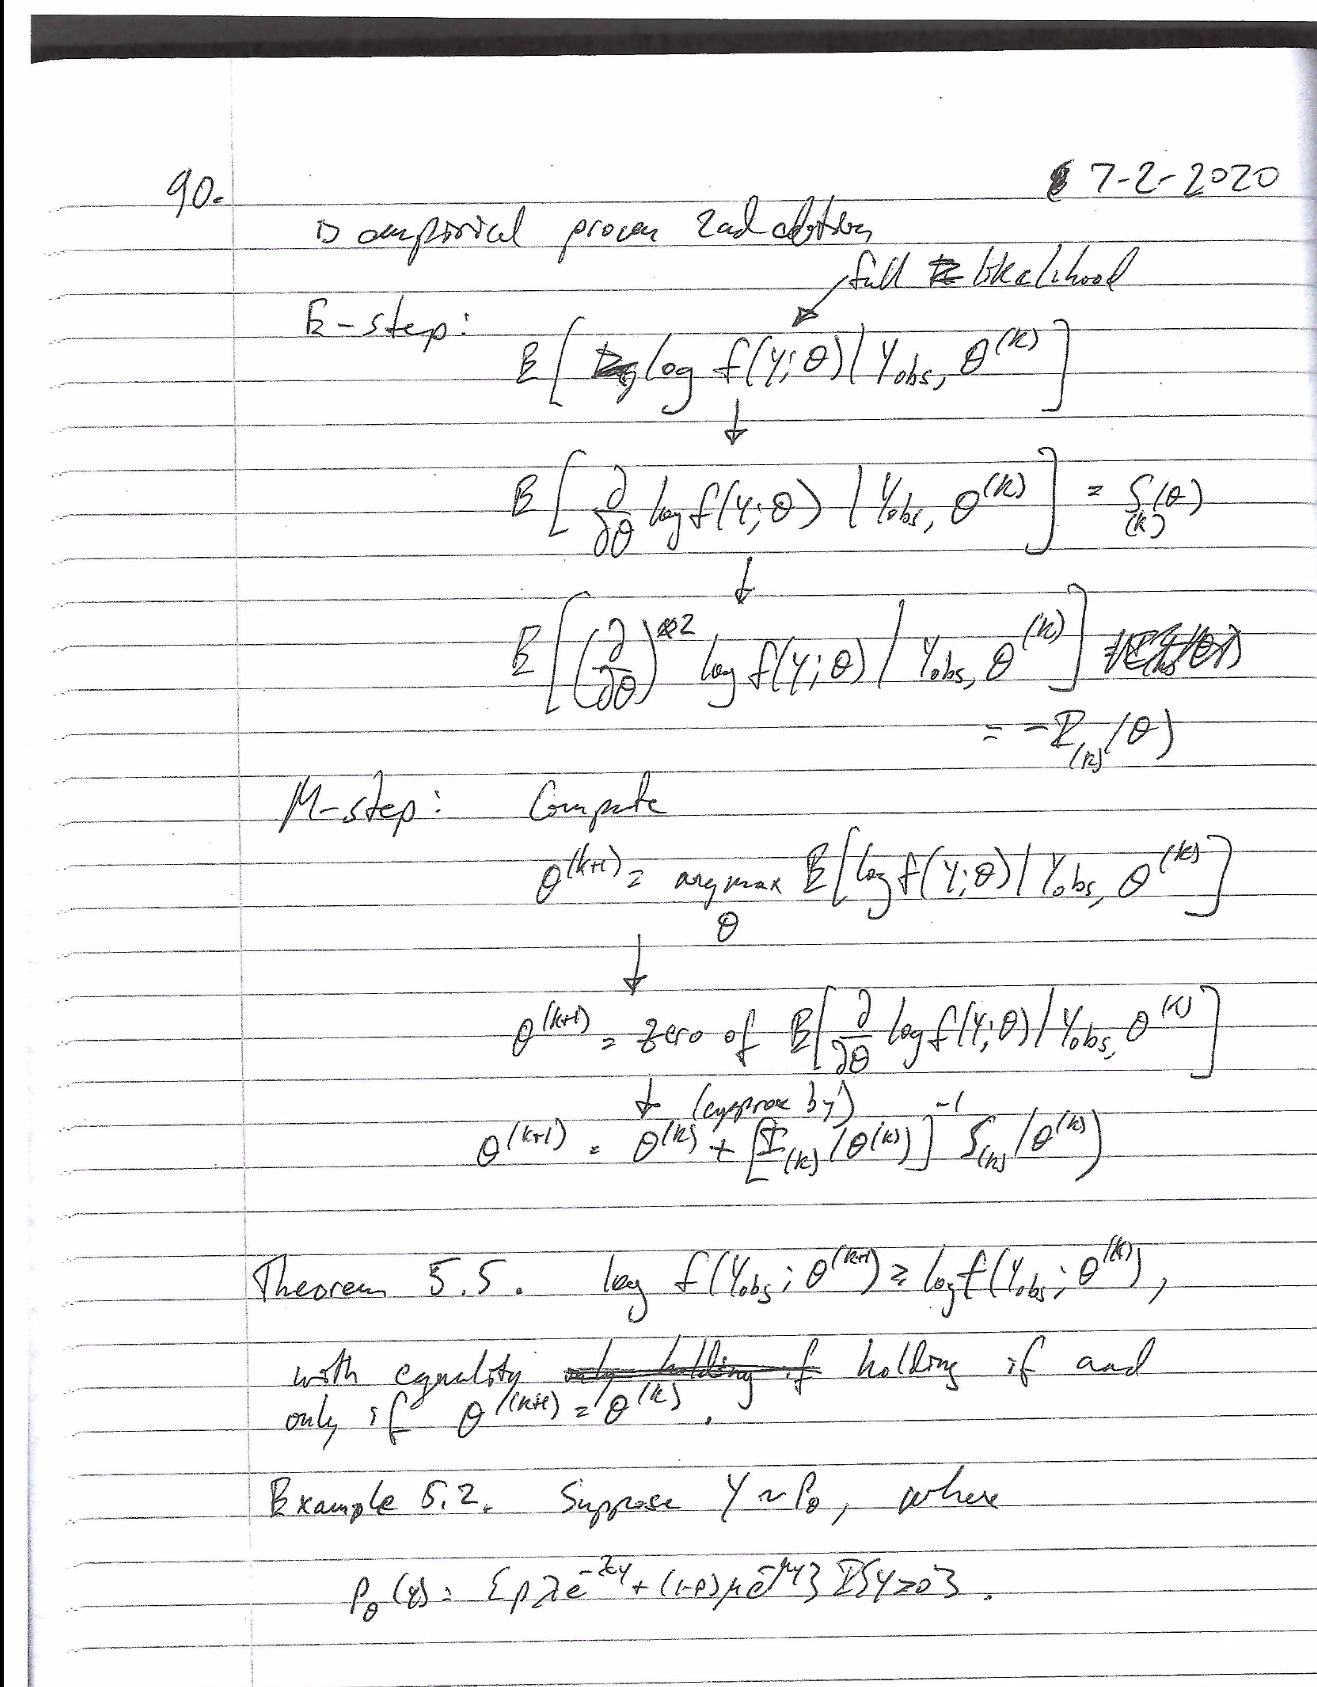 90.
7-2-2020
empirical process 2nd edition
full likelihood
E-step:
E[log f(Y;θ)|Y_obs, θ^(k)]
↓
E[∂/∂θ log f(Y;θ) | Y_obs, θ^(k)] = S_(k)(θ)
↓
E[(∂/∂θ)^⊗2 log f(Y;θ) | Y_obs, θ^(k)]
= -I_(k)(θ)
M-step: Compute
θ^(k+1) = argmax_θ E[log f(Y;θ)|Y_obs, θ^(k)]
↓
θ^(k+1) = zero of E[∂/∂θ log f(Y;θ)|Y_obs, θ^(k)]
↓ (approx by)
θ^(k+1) = θ^(k) + [I_(k)(θ^(k))]^-1 S_(k)(θ^(k))
Theorem 5.5. log f(Y_obs; θ^(k+1)) ≥ log f(Y_obs; θ^(k)),
with equality ~~only holding if~~ holding if and
only if θ^(k+1) = θ^(k).
Example 5.2. Suppose Y ~ P_θ, where
P_θ(y) = {pλe^-λy + (1-p)μe^-μy} I{y>0}.